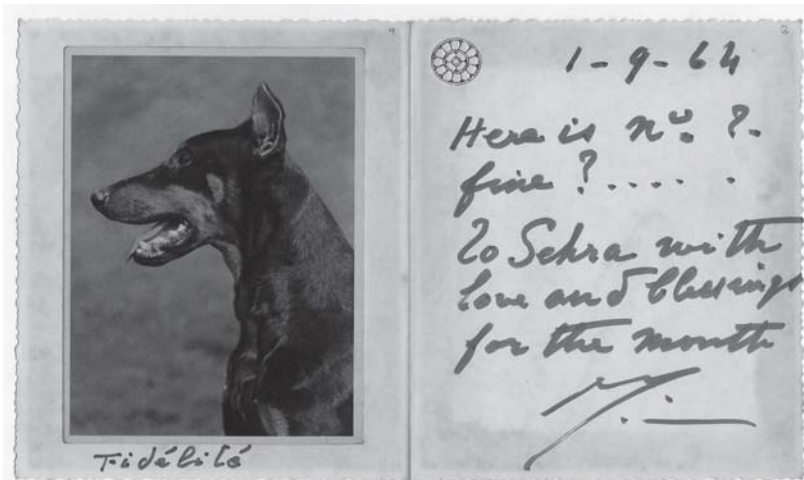 Fidélité
1-9-64
Here is nº. ?.
fine ?.....
To Sehra with
love and blessings
for the month